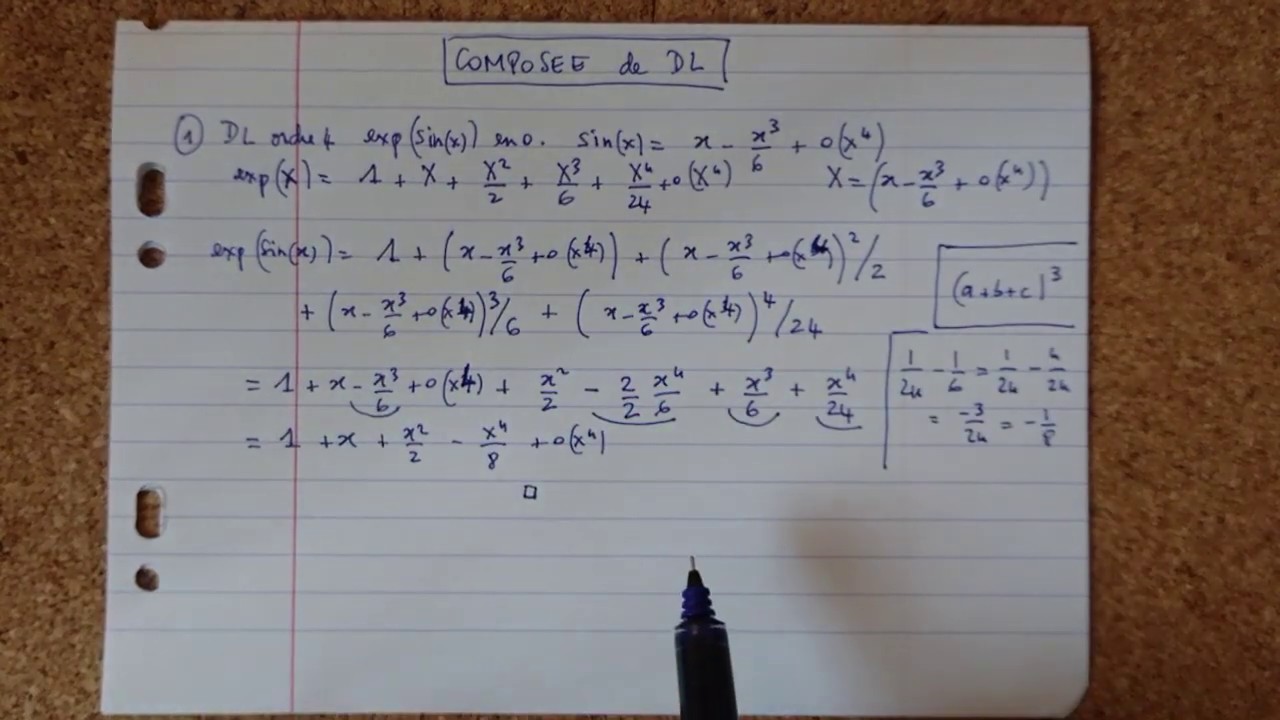 COMPOSEE de DL
① DL ordre 4 exp(sin(x)) en 0. sin(x) = x - x³/6 + o(x⁴)
exp(X) = 1 + X + X²/2 + X³/6 + X⁴/24 + o(X⁴) X = (x - x³/6 + o(x⁴))
exp(sin(x)) = 1 + (x - x³/6 + o(x4)) + (x - x³/6 + o(x4))²/2
(a+b+c)³
+ (x - x³/6 + o(x4))³/6 + (x - x³/6 + o(x4))⁴/24
= 1 + x - x³/6 + o(x4) + x²/2 - 2/2 x⁴/6 + x³/6 + x⁴/24
1/24 - 1/6 = 1/24 - 4/24
= -3/24 = -1/8
= 1 + x + x²/2 - x⁴/8 + o(x⁴)